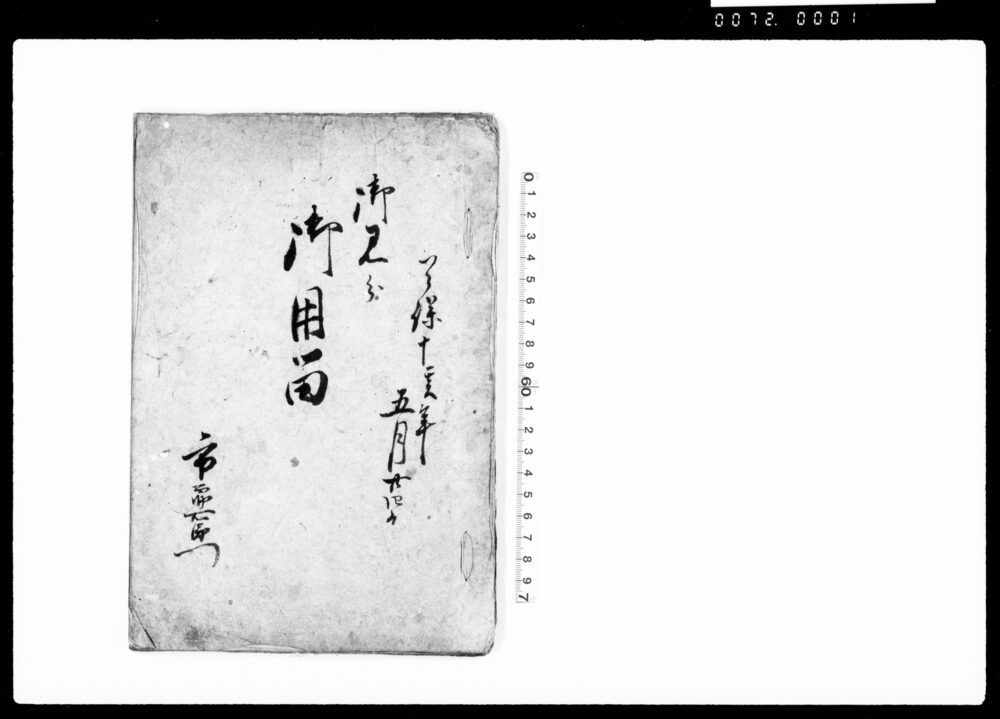 0072. 0001
天保十亥年
五月廿四日
御見分
御用留
市右衛門
0 1 2 3 4 5 6 7 8 9 60 1 2 3 4 5 6 7 8 9 7